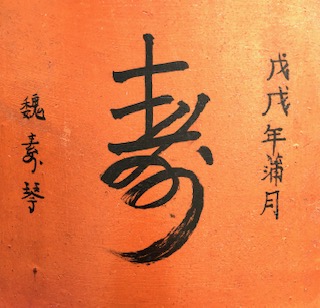 戊戌年蒲月
寿
魏素琴